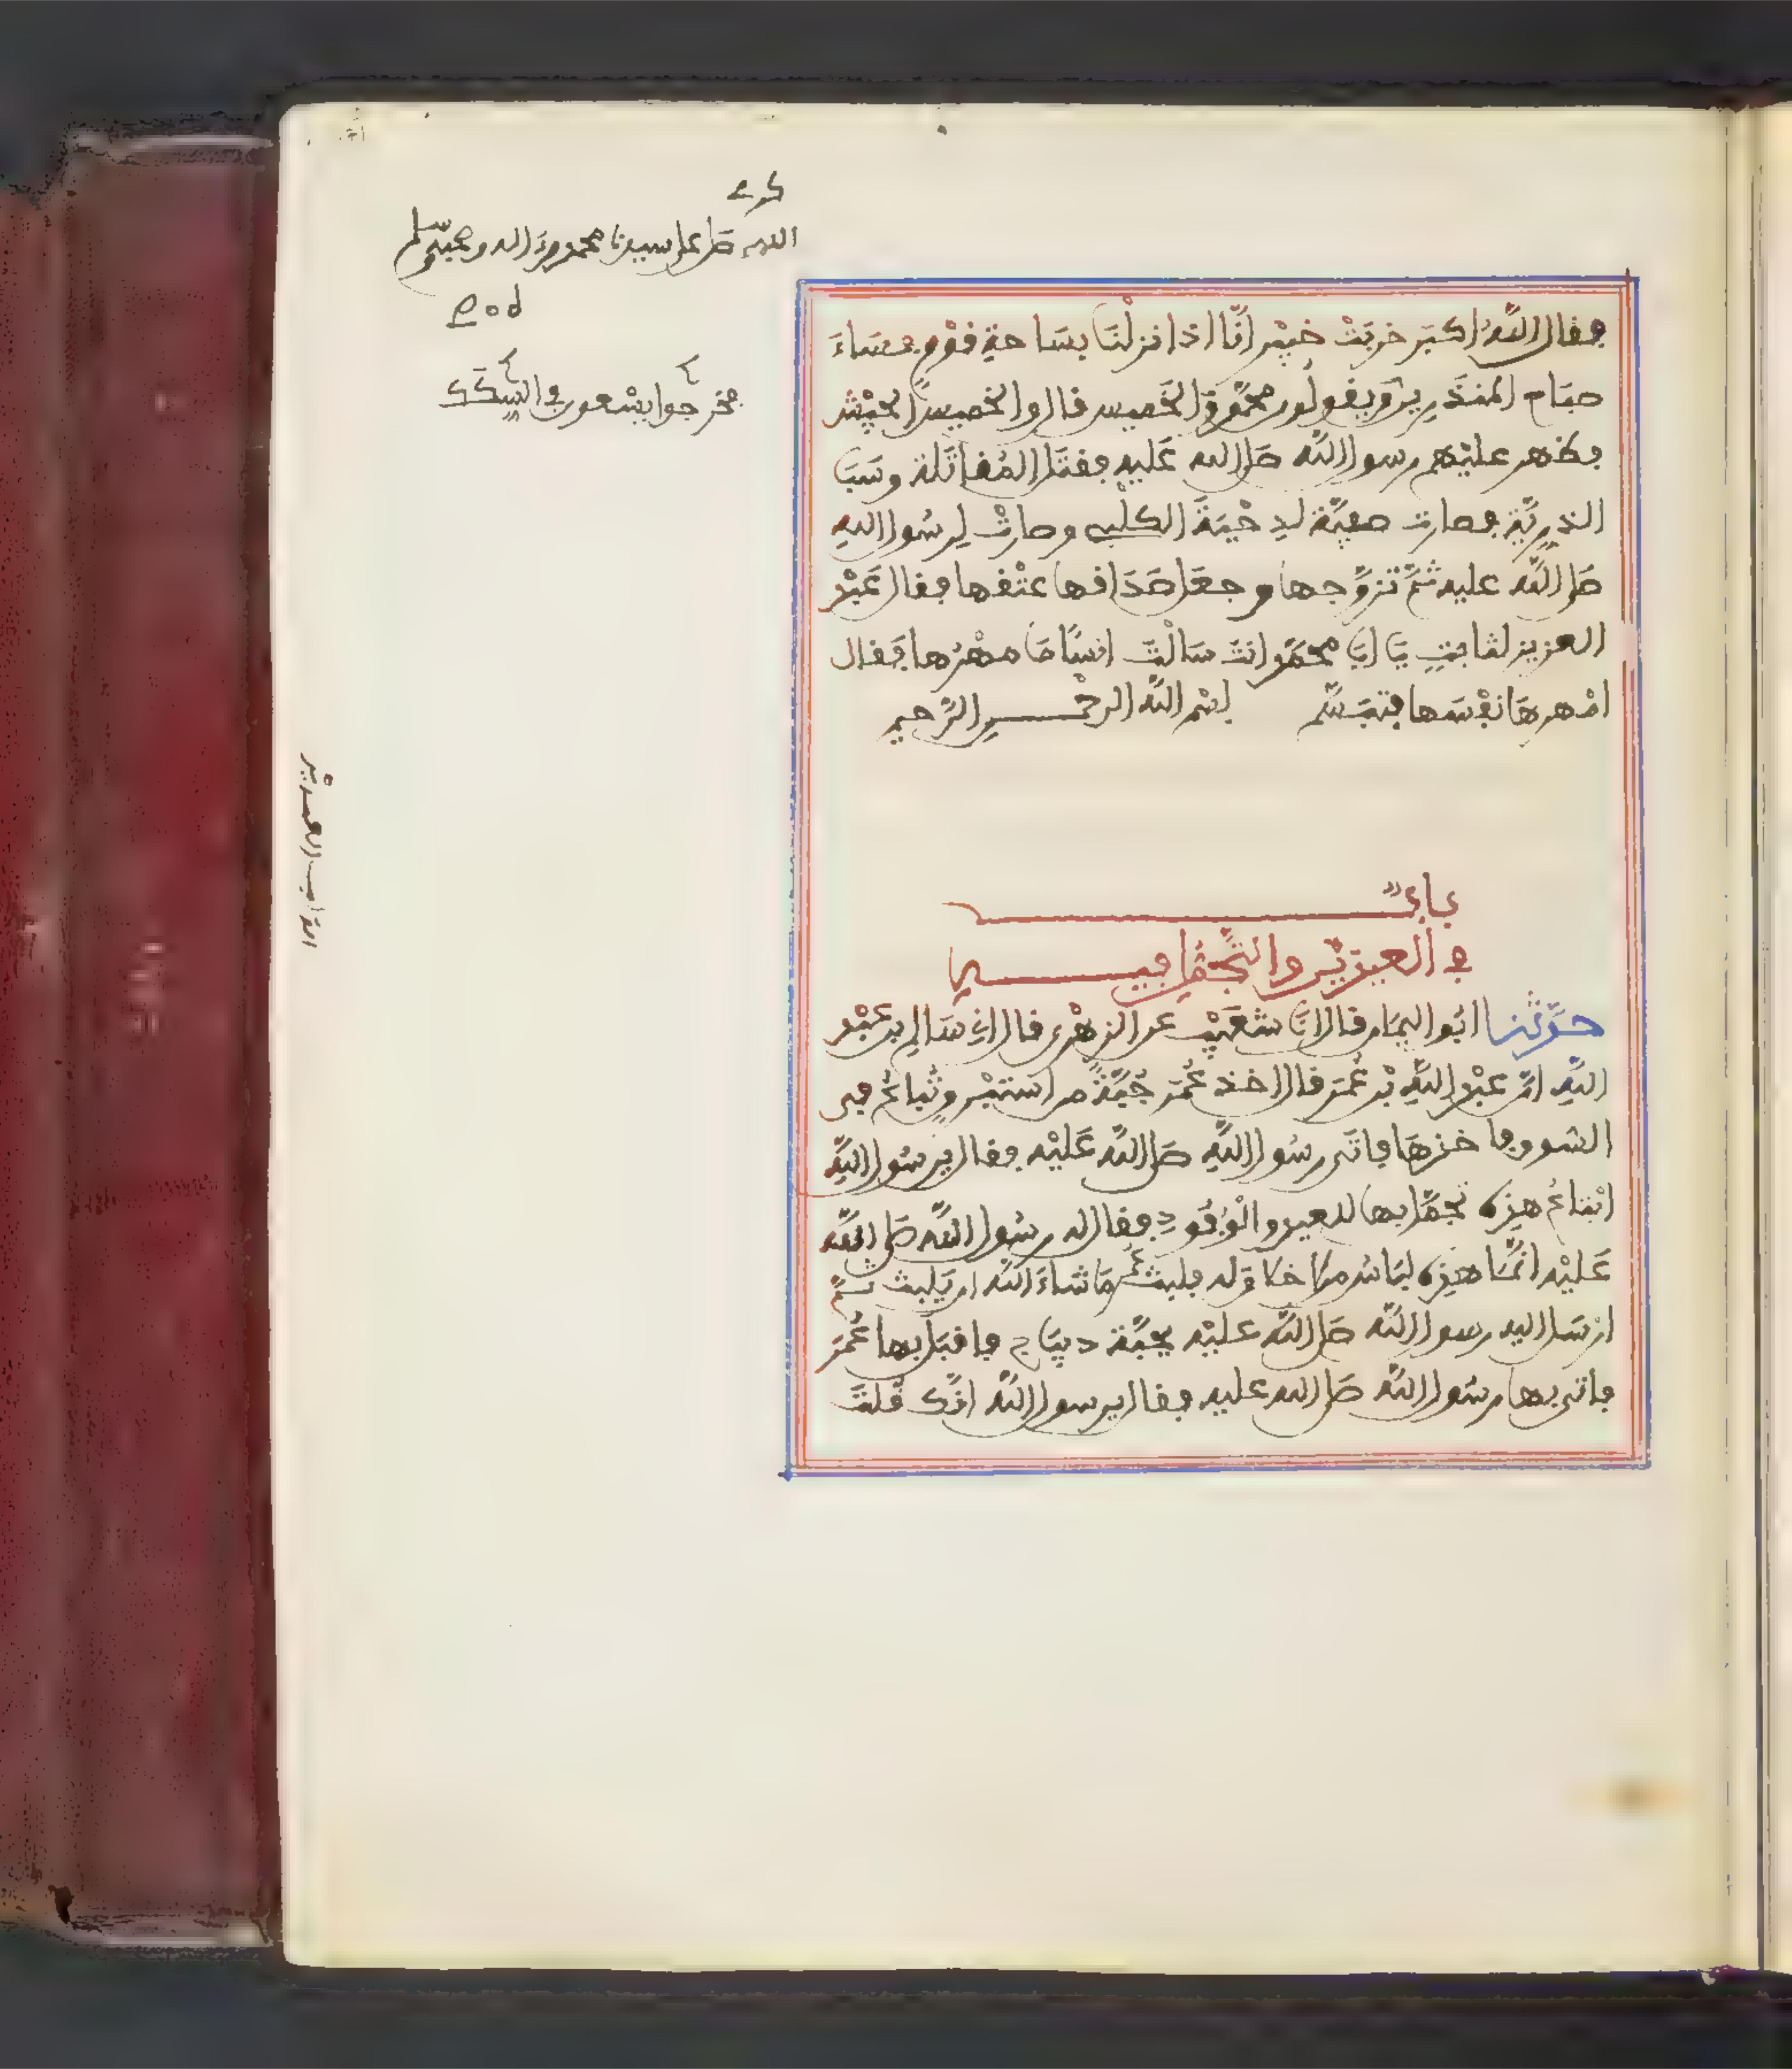 اللهم صل على سيدنا محمد وءاله وصحبه وسلم
فخرجوا يسعون في السكك
فقال اللَّهُ اكبَر خربَتْ خيْبر انَّا اذا نزلْنَا بسَاحةِ قوْمٍ فسَاءَ
صبَاح المنذَرين وَيقولُون محمَّد والخَميس قال والخميس الجيْش
فظهر عليْهم رسول اللَّه صَلى الله عَليه فقتَل المُقاتَلة وسَبَى
الذرِيَّة فصارت صفيَّة لدِحْيَةَ الكلْبي وصارتْ لِرسُول اللهِ
صَلى اللَّه عليه ثمَّ تزوَّجها وجعَل صَدَاقها عتْقها فقال عَبْد
العزيز لثابتٍ يَا ابَا محمَّد انتَ سَالْتَ انسًا مَا مهْرُها فَقال
امْهرهَا نفْسَها فتبَسَّم بسْم اللَّه الرحْمن الرَّحيم
بابٌ
في العيديْن والتَّجَمُّل فيهما
حدَّثنا ابُو اليمَان قال انَا شعَيْب عن الزهْري قال اني سَالِم بن عَبْد
اللَّهِ انَّ عبْد اللَّهِ بْن عُمَر قال اخذ عُمَر جُبَّةً من استبْرق تُباعُ في
السوق فاخذهَا فاتَى رسُول اللَّهِ صَلى اللَّه عَليْه فقال يرسُول اللَّهِ
ابْتاعُ هذه تجمَّل بها للعيد والْوُفُود فقال له رسُول اللَّه صَلى اللَّه
عَليْه انَّمَا هذه لبَاسُ من لا خلاقَ له فلبث عُمَر مَا شاءَ اللَّه ان يَلبث ثمَّ
ارْسَل اليه رسول اللَّه صَلى اللَّه عليْه بجبَّة ديبَاج فاقبَل بها عُمَر
فاتى بها رسُول اللَّه صَلى الله عليه فقال يرسول اللَّه انَّك قُلتَ